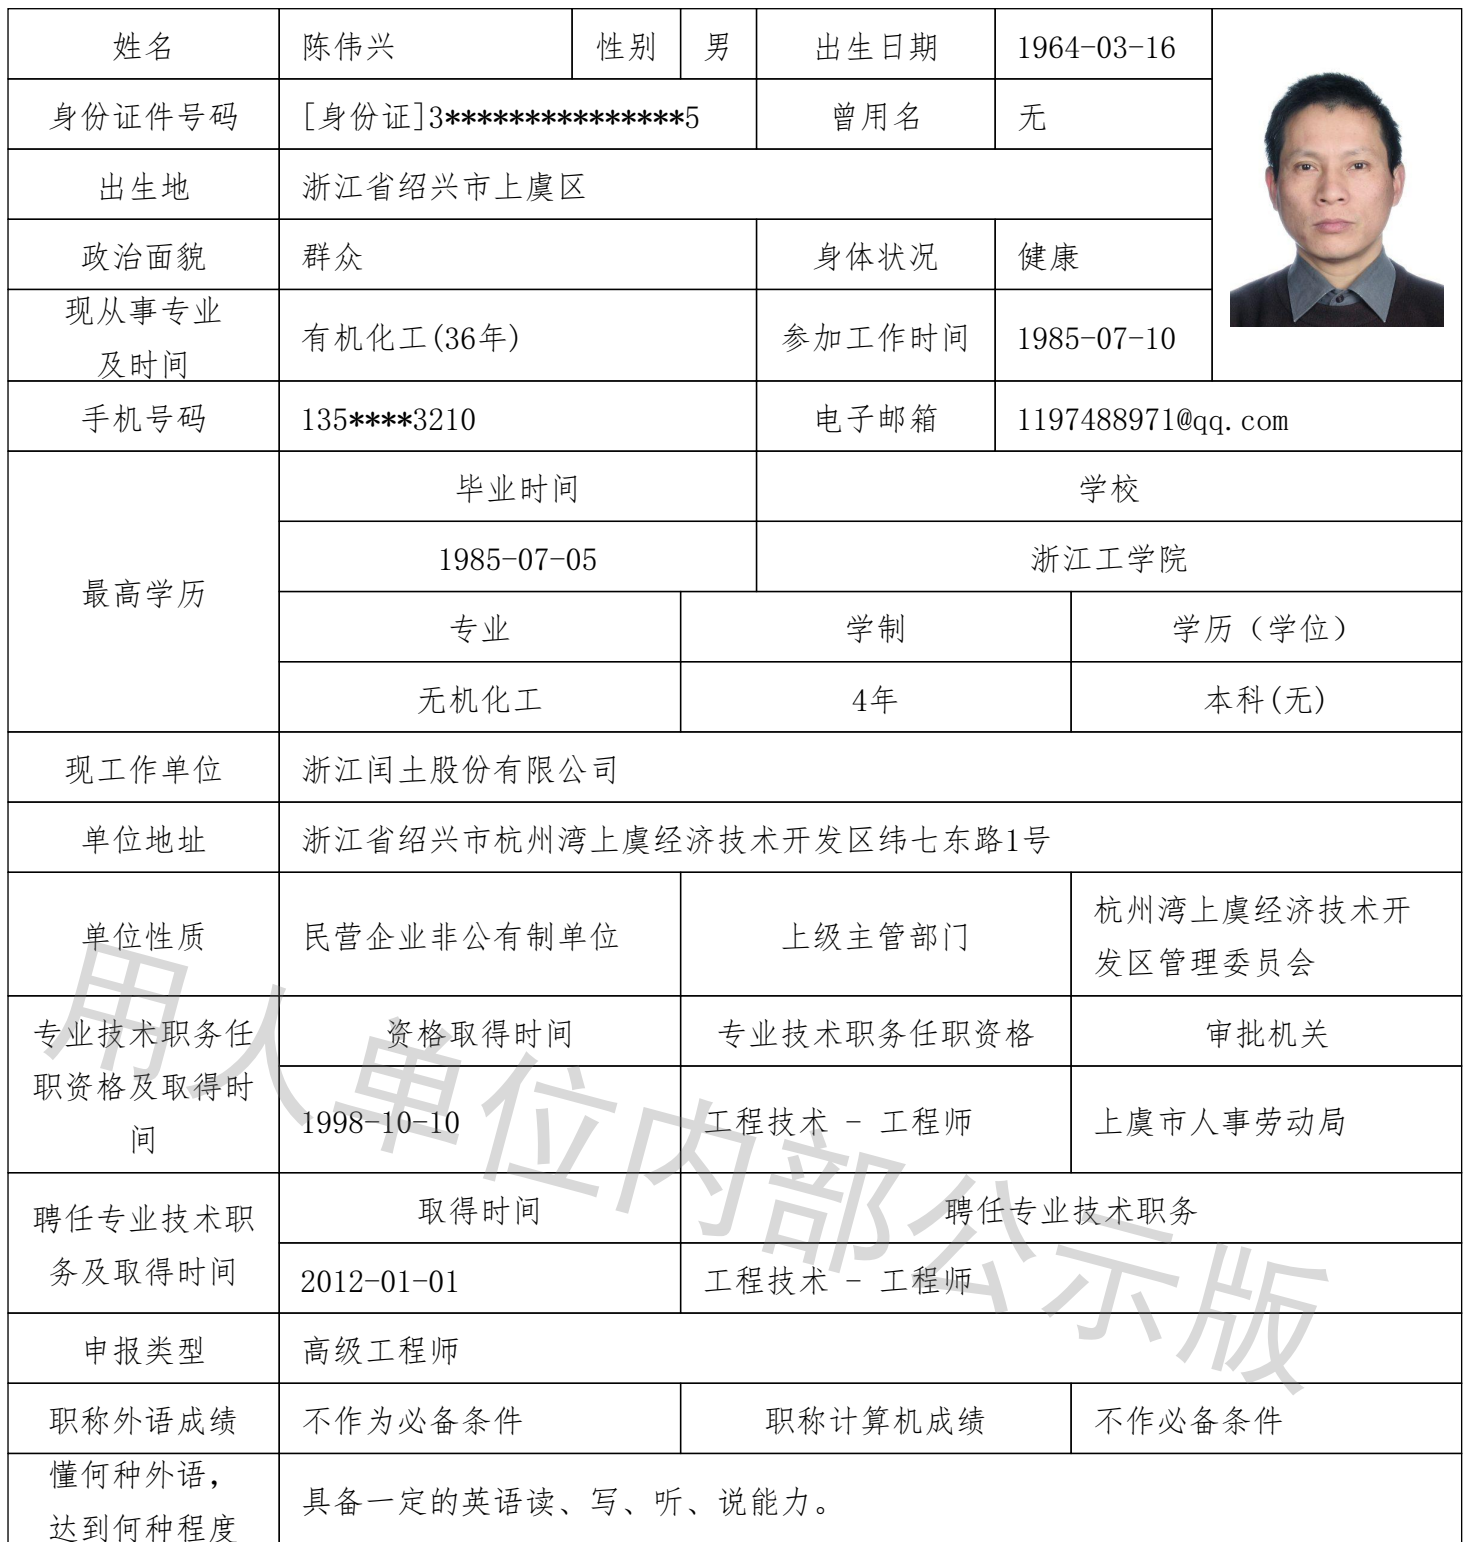 姓名 陈伟兴 性别 男 出生日期 1964-03-16
身份证件号码 [身份证]3***************5 曾用名 无
出生地 浙江省绍兴市上虞区
政治面貌 群众 身体状况 健康
现从事专业
及时间 有机化工(36年) 参加工作时间 1985-07-10
手机号码 135****3210 电子邮箱 1197488971@qq.com
最高学历
毕业时间 学校
1985-07-05 浙江工学院
专业 学制 学历（学位）
无机化工 4年 本科(无)
现工作单位 浙江闰土股份有限公司
单位地址 浙江省绍兴市杭州湾上虞经济技术开发区纬七东路1号
单位性质 民营企业非公有制单位 上级主管部门 杭州湾上虞经济技术开
发区管理委员会
专业技术职务任
职资格及取得时
间
资格取得时间 专业技术职务任职资格 审批机关
1998-10-10 工程技术 - 工程师 上虞市人事劳动局
聘任专业技术职
务及取得时间
取得时间 聘任专业技术职务
2012-01-01 工程技术 - 工程师
申报类型 高级工程师
职称外语成绩 不作为必备条件 职称计算机成绩 不作必备条件
懂何种外语，
达到何种程度 具备一定的英语读、写、听、说能力。
用人单位内部公示版